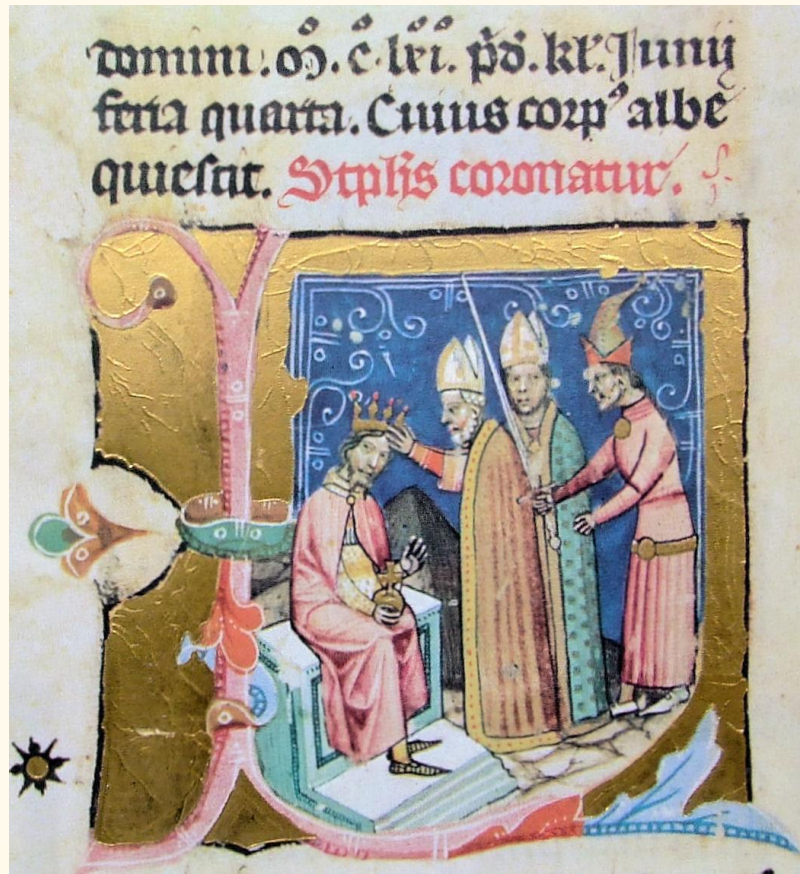 domini. M̊. c̊. lxi. p̄d. kl̄. Junij
feria quarta. Cuius corpꝰ albe
quiescit. Stph̄s coronatur.